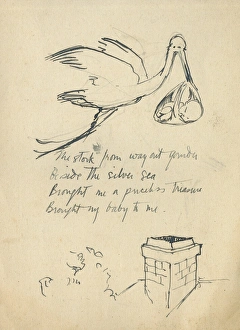 The stork from way out yonder
Beside the silver sea
Brought me a priceless treasure
Brought my baby to me.